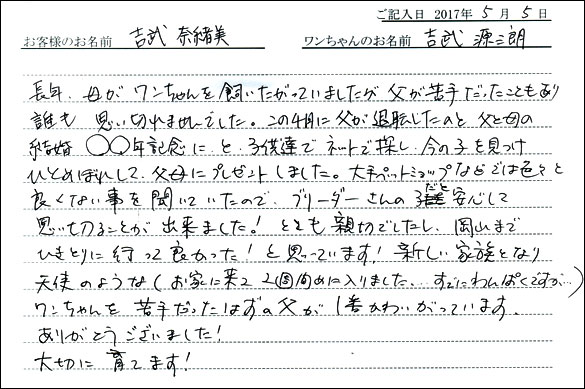 ご記入日 2017年 5月 5日
お客様のお名前 吉武 奈緒美 ワンちゃんのお名前 吉武 源三朗
長年、母がワンちゃんを飼いたがっていましたが 父が苦手だったこともあり
誰も 思い切れませんでした。この4月に父が退転したのと 父と母の
結婚 〇〇年記念に と 子供達で ネットで探し 今の子を見つけ
ひとめぼれして、父母にプレゼントしました。大手ペットショップなどでは色々と
良くない事を聞いていたので、ブリーダーさんの だと 安心して
思い切ることが 出来ました! とても親切でしたし、岡山まで
ひきとりに 行って良かった!と思っています! 新しい家族となり
天使のような(お家に来て2週間めに入りました、、すでにわんぱくですが…)
ワンちゃんを 苦手だったはずの父が 1番かわいがっています。
ありがとうございました!
大切に育てます!